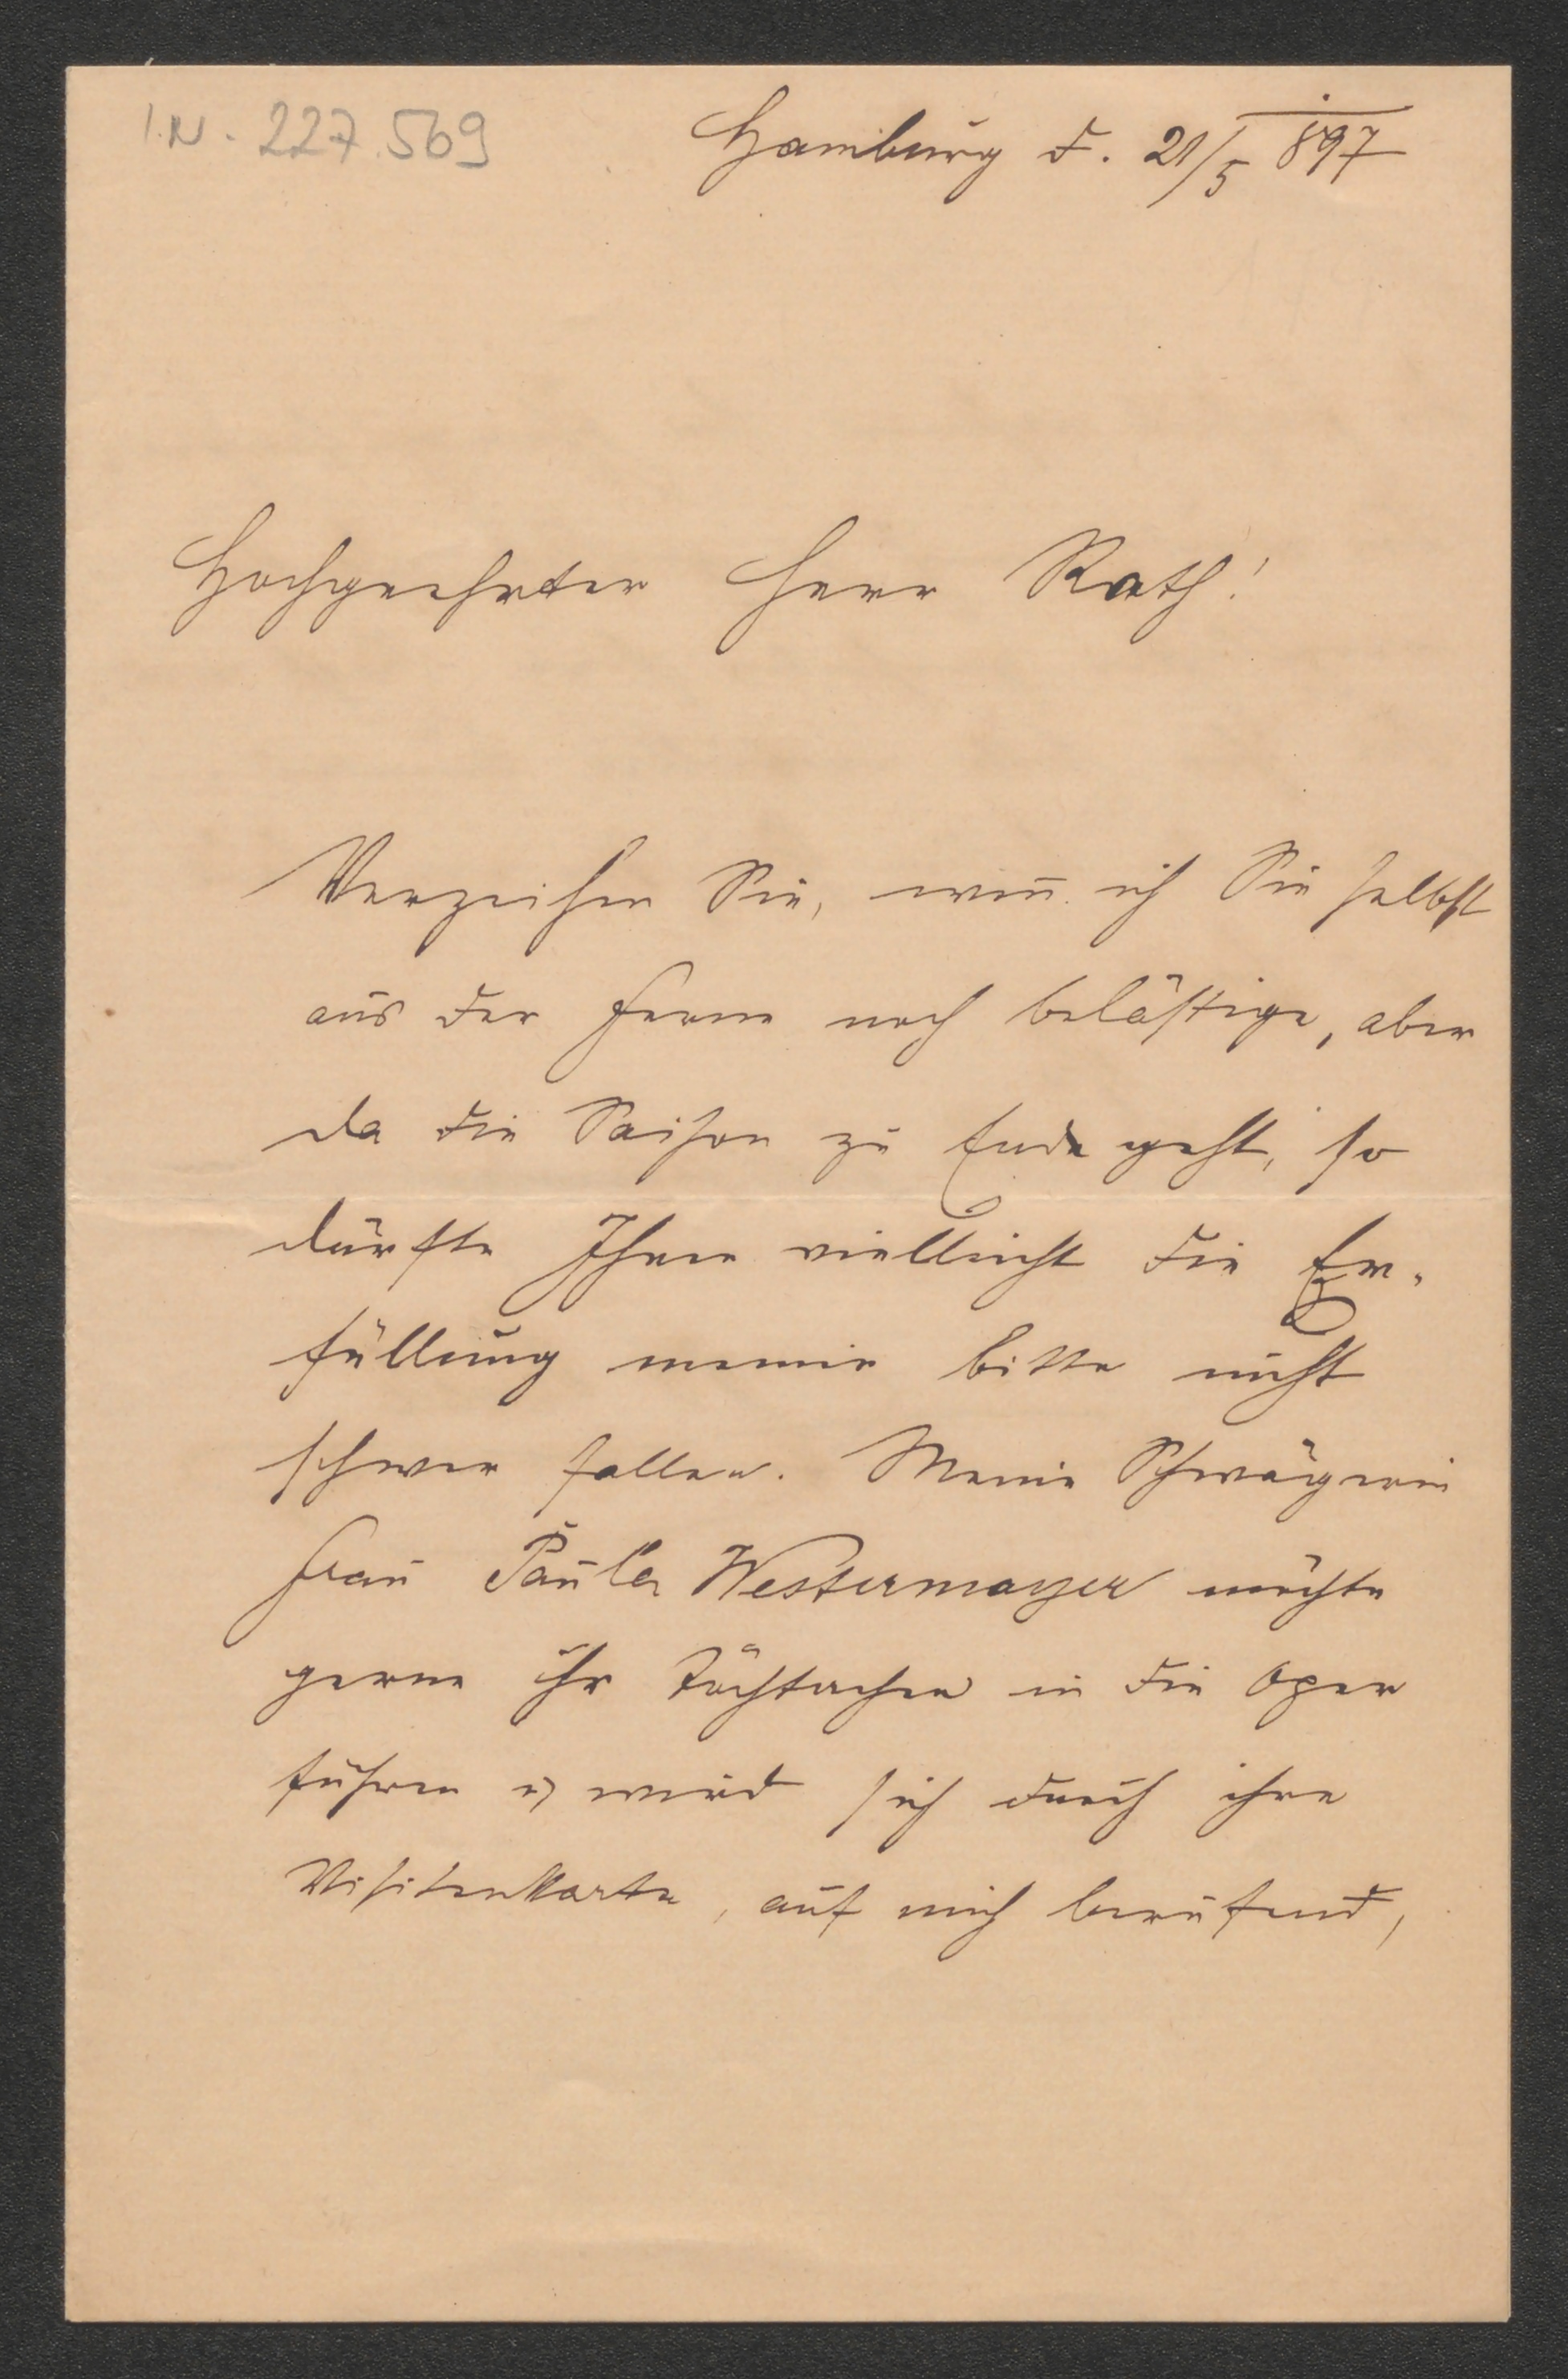 I.N. 227.569
Hamburg d. 21/5 897
Hochgeehrter Herr Rath!
Verzeihen Sie, wen̄ ich Sie selbst
aus der Ferne noch belästige, aber
da die Saison zu Ende geht, so
dürfte Ihnen vielleicht die Er-
füllung meiner bitte nicht
schwer fallen. Meine Schwägerin
Frau Paula Westermayer möchte
gerne ihr Töchterchen in die Oper
führen u wird sich durch ihre
Visitenkarte, auf mich berufend,